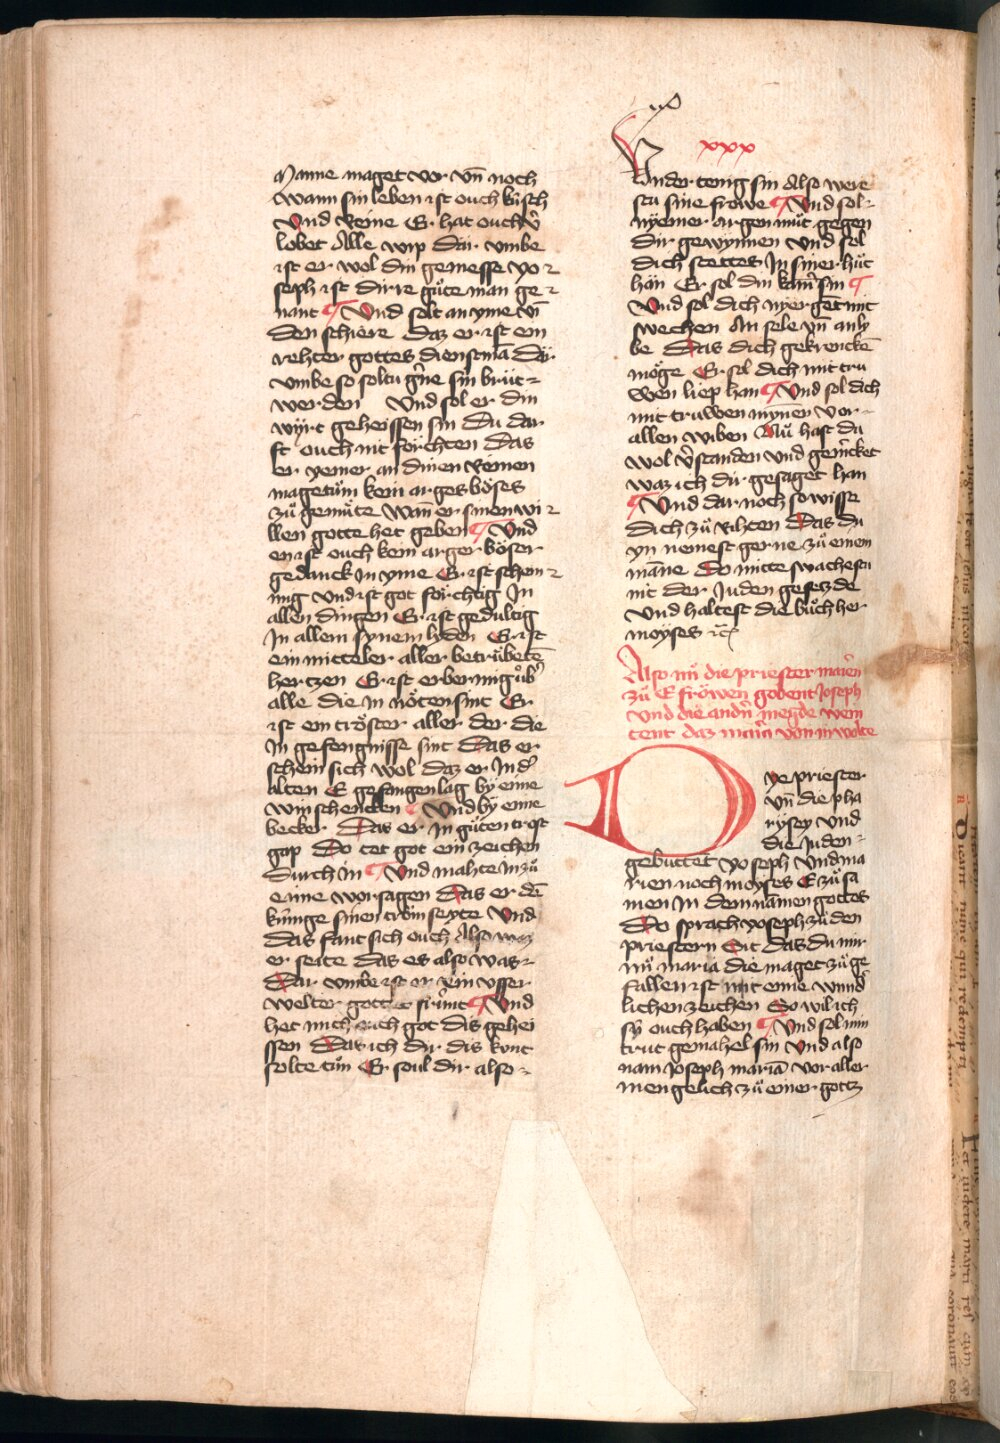 Manne maget vor vn̄ noch
Wann sin leben ist ouch kúsch
Vnd Reine Er hat ouch v̾
lobet Alle wip Dar vmbe
ist er wol din gemesse yo⸗
seph ist dirre gůte man ge⸗
nant ¶ Vnd solt an yme vī
den schiere daz er ist ein
rehter gottes dienstmā Dar
vmbe so soltu g̾ne sin brút⸗
werden Vnd sol er din
wýrt geheissen sin Du dar
ft ouch nit fórchten Das
er yemer an dinen Reinen
magetům kein arges bóses
zů gemúte Wan̄ er sinen wi⸗
llen gotte het geben ¶ Vnd
en ist ouch kein arger bóser
gedanck In yme Er ist schein⸗
nig vnd ist got fórchtig In
allen dingen Er ist gedultig
In allem synem lyden Er ist
ein mitteler aller betrúbetē
hertzen Er ist erbermig úb̾
alle die In nóten sint Er
ist ein tróster aller der die
In gefengnisse sint Das er
schein sich wol daz er In d̾
alten E gefangen lag by eime
winschencken ¶ Vnd by eime
becker Das er In gůten trost
gap Do tet got ein zeichen
durch in ¶ Vnd mahte In zů
eime worsagen Das er dē
kúnige sinen trŏm seyte Vnd
das fant sich ouch Also waz
er seite das es also was⸗
Dar vmbe ist er ein vsser
welter gottes frúnt ¶ Vnd
het mich ouch got dis gehei
ssen Das ich dir dis kunt
solte tůn Er soul dir also⸗
xxx
Vnder tenig sin Also were
stu sine frowe ¶ Vnd sol⸗
nyemer argen můt gegen
dir gewynnen Vnd sol
dich stettes In siner hůt
hán Er sol din kam̄ sin ¶
Vnd sol dich nyerget mit
swechen An sele vn̄ an ly
be Das dich gekrenckē
móge Er sol dich mit tru
wen liep han ¶ Vnd sol dich
mit truwen mynnen vor⸗
allen wiben Nů hast du
wol v̾standen vnd gem̾cket
waz ich dir gesaget han
¶ Vnd dar noch so wisse
dich zů Rihten Das du
yn nemest gerne zů einem
manne Do mitte swachestu
nit der Juden gesetzde
Vnd haltest die bůcher
moyses ꝛc̄
Also nů die priester marien
zů E frówen gobent Joseph
Vnd die andn̾ megde wein
tent daz maria von in wolte
Dye priester
vn̄ die pha
rysey Vnd
die Juden⸗
gebuttet yoseph Vnd ma
rien noch moyses E zů sa
men In dem nammen gottes
Do sprach yoseph zů den
priestern Sit das du mir
nů maria die maget zů ge
fallen ist mit eime wund̾
lichen zeichen So wil ich
sý ouch haben ¶ Vnd sol min
trut gemahel sin Vnd also
nam Joseph mariā vor aller
mengelich zů einer gottz